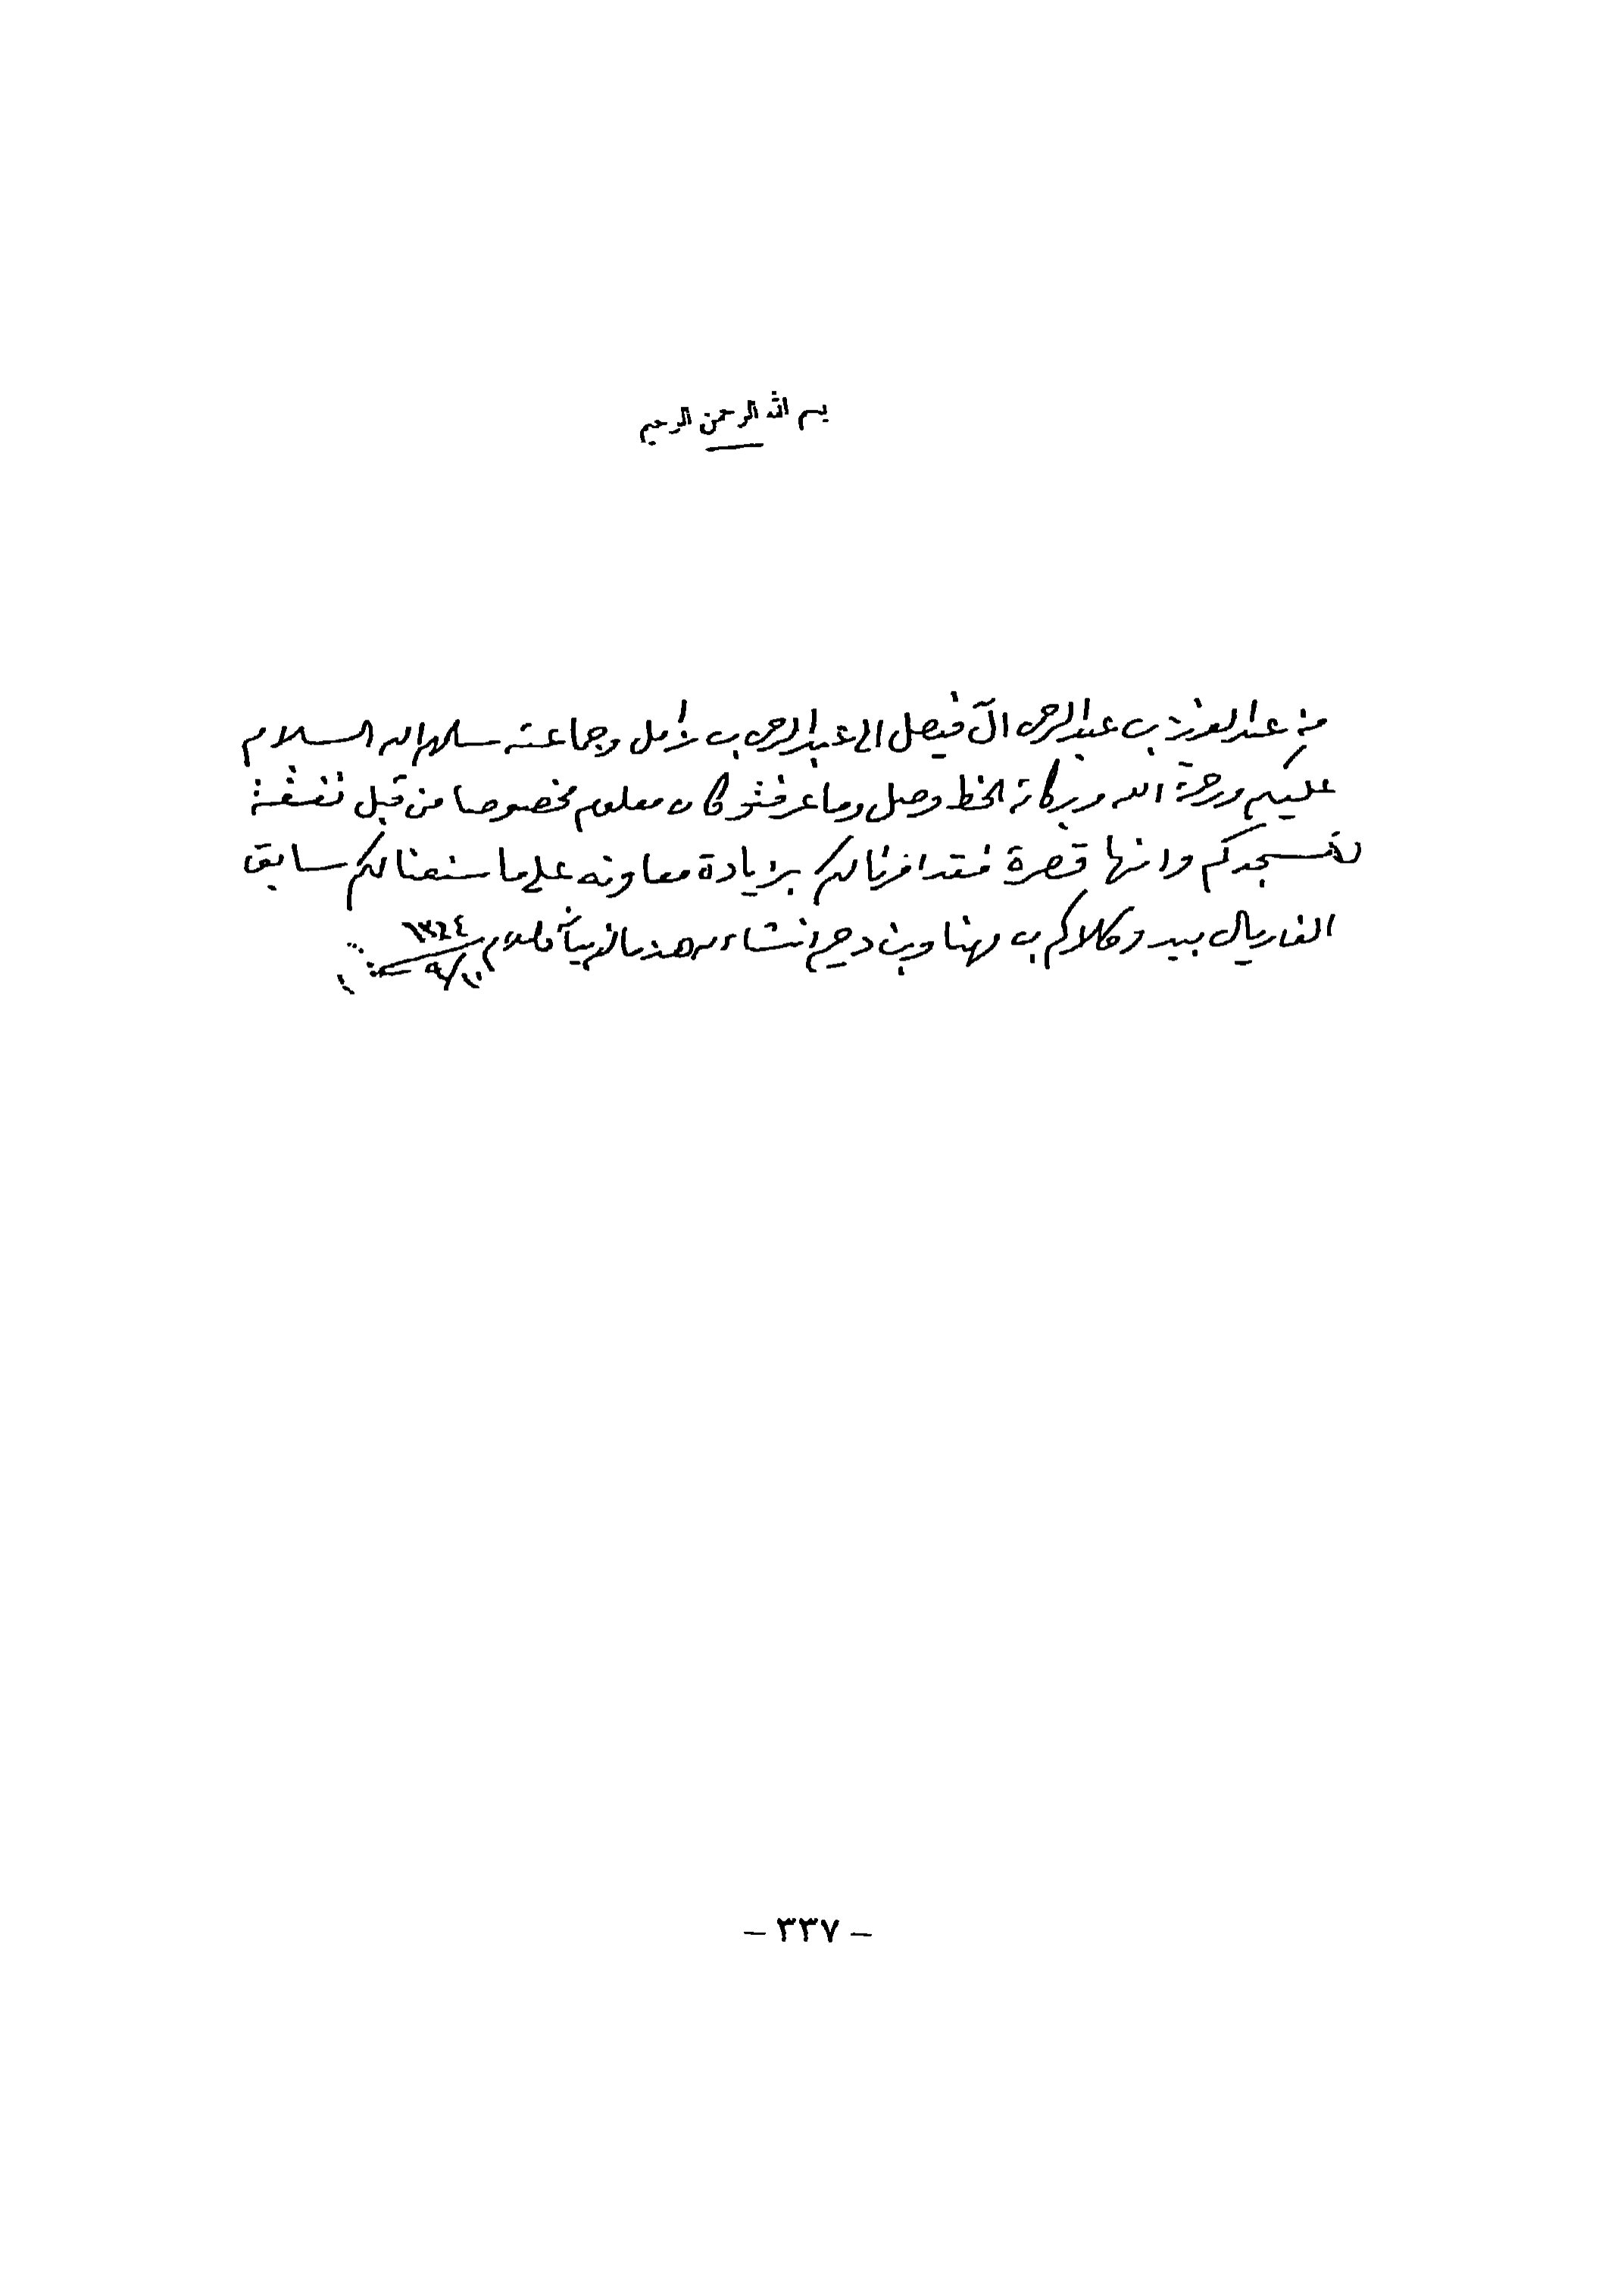 بسم الله الرحمن الرحيم
من عبد العزيز بن عبد الرحمن آل فيصل الى عبد الرحمن بن زامل وجماعته سلمهم الله السلام
عليكم ورحمة الله وبركاته الخط وصل وما عرفتو كان معلوم مخصوصا من قبل نفقة
مسجدكم وانها قصرة فقد امرنا لكم بزيادة معاونه على ما سنعنا لكم سابق
الفا ريال بيد وكلاكم بن مهنا وبن دحيم انشاء الله هذا مالزم بيانه والسلام
١٠/٩
– ٣٣٧ –